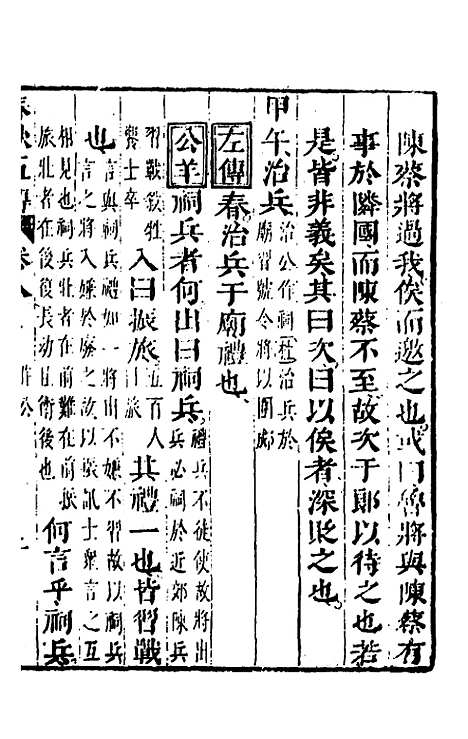 陳蔡將過我俟而邀之也或曰魯將與陳蔡有
事於隣國而陳蔡不至故次于郎以待之也若
是皆非義矣其曰次曰以俟者深貶之也
甲午治兵治公作祠杜治兵於廟習號令將以圍郕
左傳春治兵于廟禮也
公羊祠兵者何出曰祠兵禮兵不徒使故將出兵必祠於近郊陳兵
習戰殺牲饗士卒入曰振旅五百人曰旅其禮一也皆習戰
也言與祠兵禮如一將出不嫌不習故以祠兵言之將入嫌於廢之故以振訊士衆言之互
相見也祠兵壯者在前難在前振旅壯者在後復長幼且衛後也何言乎祠兵
春秋五傳 卷八